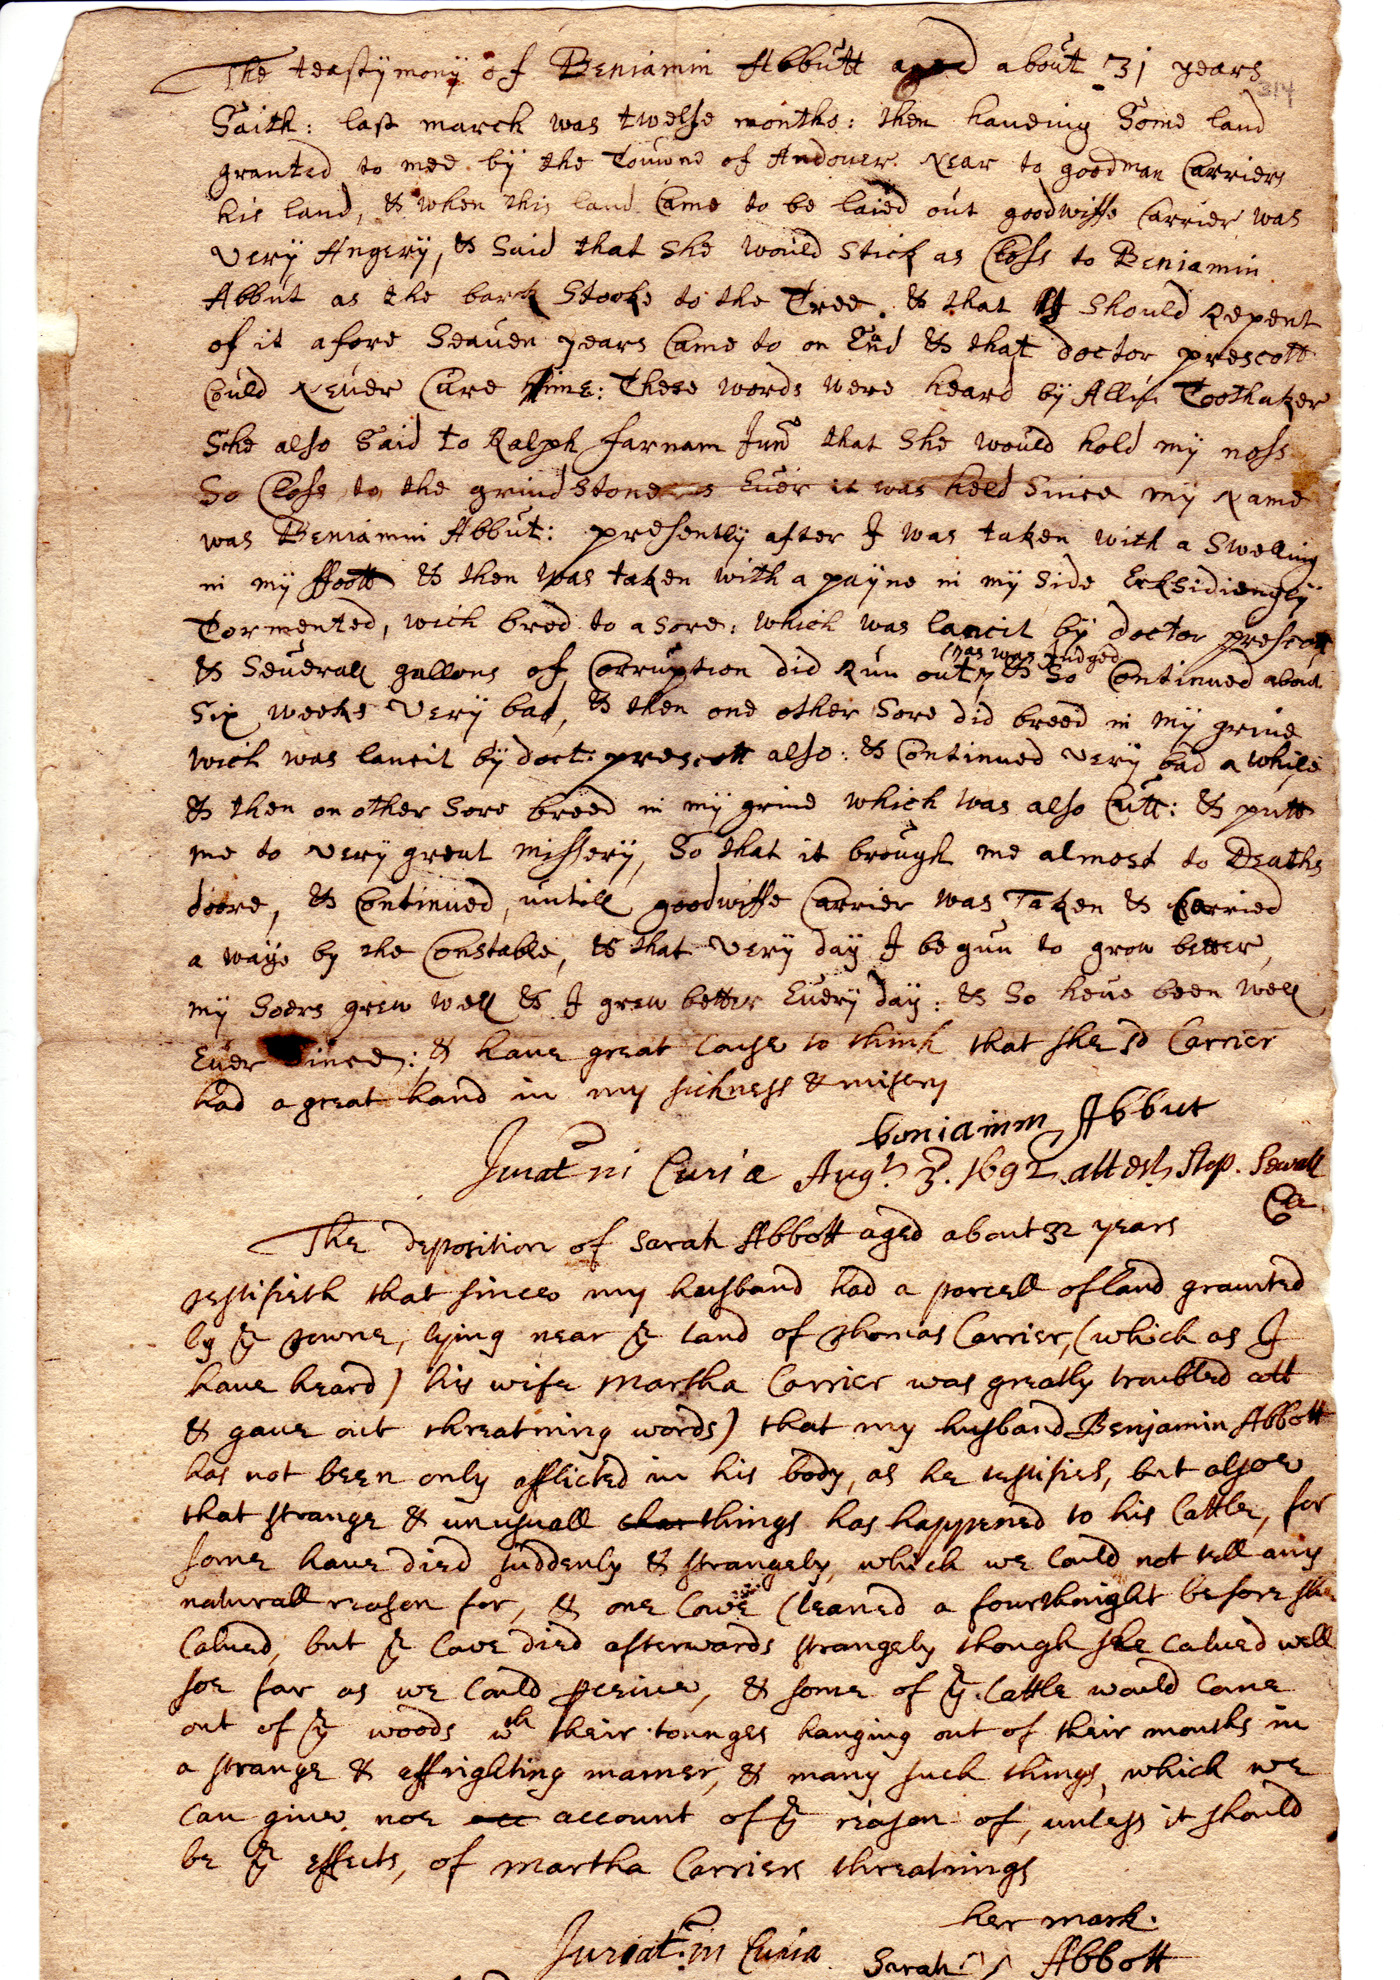 The teastymony of Beniamin Abbutt aged about 31 years
314
Saith: last march was twelfe months: then haueing Some land
granted to mee by the Touwne of Andouer Near to goodman Carriers
his land, & when this land Came to be laied out goodwiffe Carrier was
very Angery, & said that she would stick as Closs to Beniamin
Abbut as the bark stooke to the Tree & that I should Repent
of it afore seauen years Came to an End & that doctor prescott
Could Neuer Cure hime: These words were heard by Allin Toothaker
She also said to Ralph farnam Junr that she would hold my noss
so Closs to the grindstone as Euer it was held since my Name
was Beniamin Abbut: presently after I was taken with a swelling
in my ffoott & then was taken with a payne in my side Exksidiengly
Tormented, wich bred to a sore: which was lancit by doctor prescott
& seuerall gallons of Corruption did Run out & so Continued about
(as was Judged
six weeks very bad, & then one other sore did breed in my grine
wich was lancit by doct: prescott also: & Continued very bad a while
& then on other sore breed in my grine which was also Cutt: & putt
me to very great missery, So that it brough me almost to Deaths
doore, & Continued, untill goodwiffe Carrier was Taken & Carried
a waye by the Constable, & that very day I begun to grow better,
my soers grew well & I grew better Euery day: & so heue been well
Euer since: & haue great Cause to think that she sd Carrier
had a great hand in my sickness & misery
beniamin Abbut
Jurat in Curia Augt. 3. 1692 attest Step. Sewall
Cle
The deposition of Sarah Abbott aged about 32 years
testifieth that since my husband had a parcell of land graunted
by ye towne, lying near ye land of Thomas Carrier, (which as I
haue heard) his wife Martha Carrier was greatly troubled att
& gaue out threatning words) that my husband Benjamin Abbott
has not been only afflicted in his body, as he testifies, but alsoe
that strange & unusuall things has happened to his Cattle, for
some haue died suddenly & strangely, which we could not tell any
naturall reason for, & one Cowe Cleaned a fourthnight before she
Calued, but ye Cowe died afterwards strangely though she calued well
soe far as we could perceiue, & some of ye Cattle would come
out of ye woods wth their tounges hanging out of their mouths in
a strange & affrighting manner, & many such things, which we
can giue noe acc account of ye reason of, unless it should
be ye effects, of Martha Carriers threatnings
her mark.
Jurat in Curia Sarah Abbott